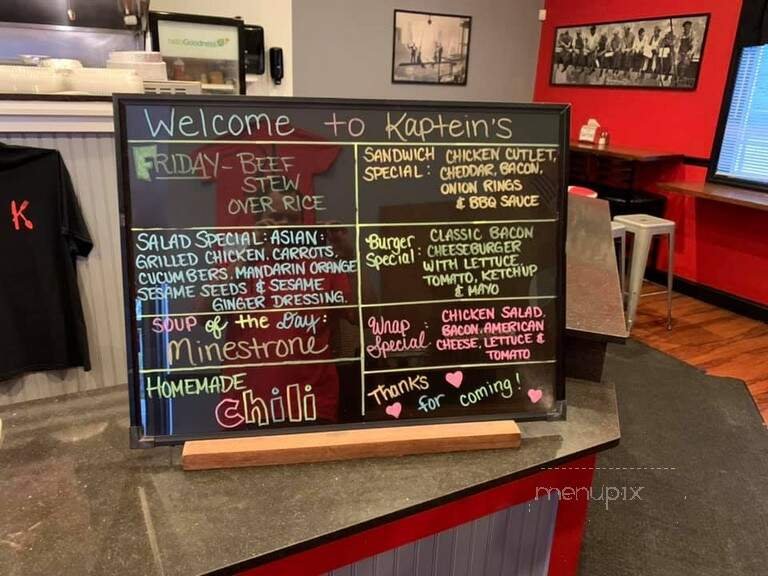 helloGoodness
Welcome to Kaptein's
FRIDAY - BEEF
STEW
OVER RICE
SANDWICH CHICKEN CUTLET,
SPECIAL: CHEDDAR, BACON,
ONION RINGS
& BBQ SAUCE
SALAD SPECIAL: ASIAN:
GRILLED CHICKEN, CARROTS,
CUCUMBERS, MANDARIN ORANGE
SESAME SEEDS & SESAME
GINGER DRESSING.
Burger CLASSIC BACON
Special: CHEESEBURGER
WITH LETTUCE,
TOMATO, KETCHUP
& MAYO
SOUP of the Day:
Minestrone
Wrap Special: CHICKEN SALAD,
BACON, AMERICAN
CHEESE, LETTUCE &
TOMATO
HOMEMADE
Chili
THANKS
for coming!
K
menupix